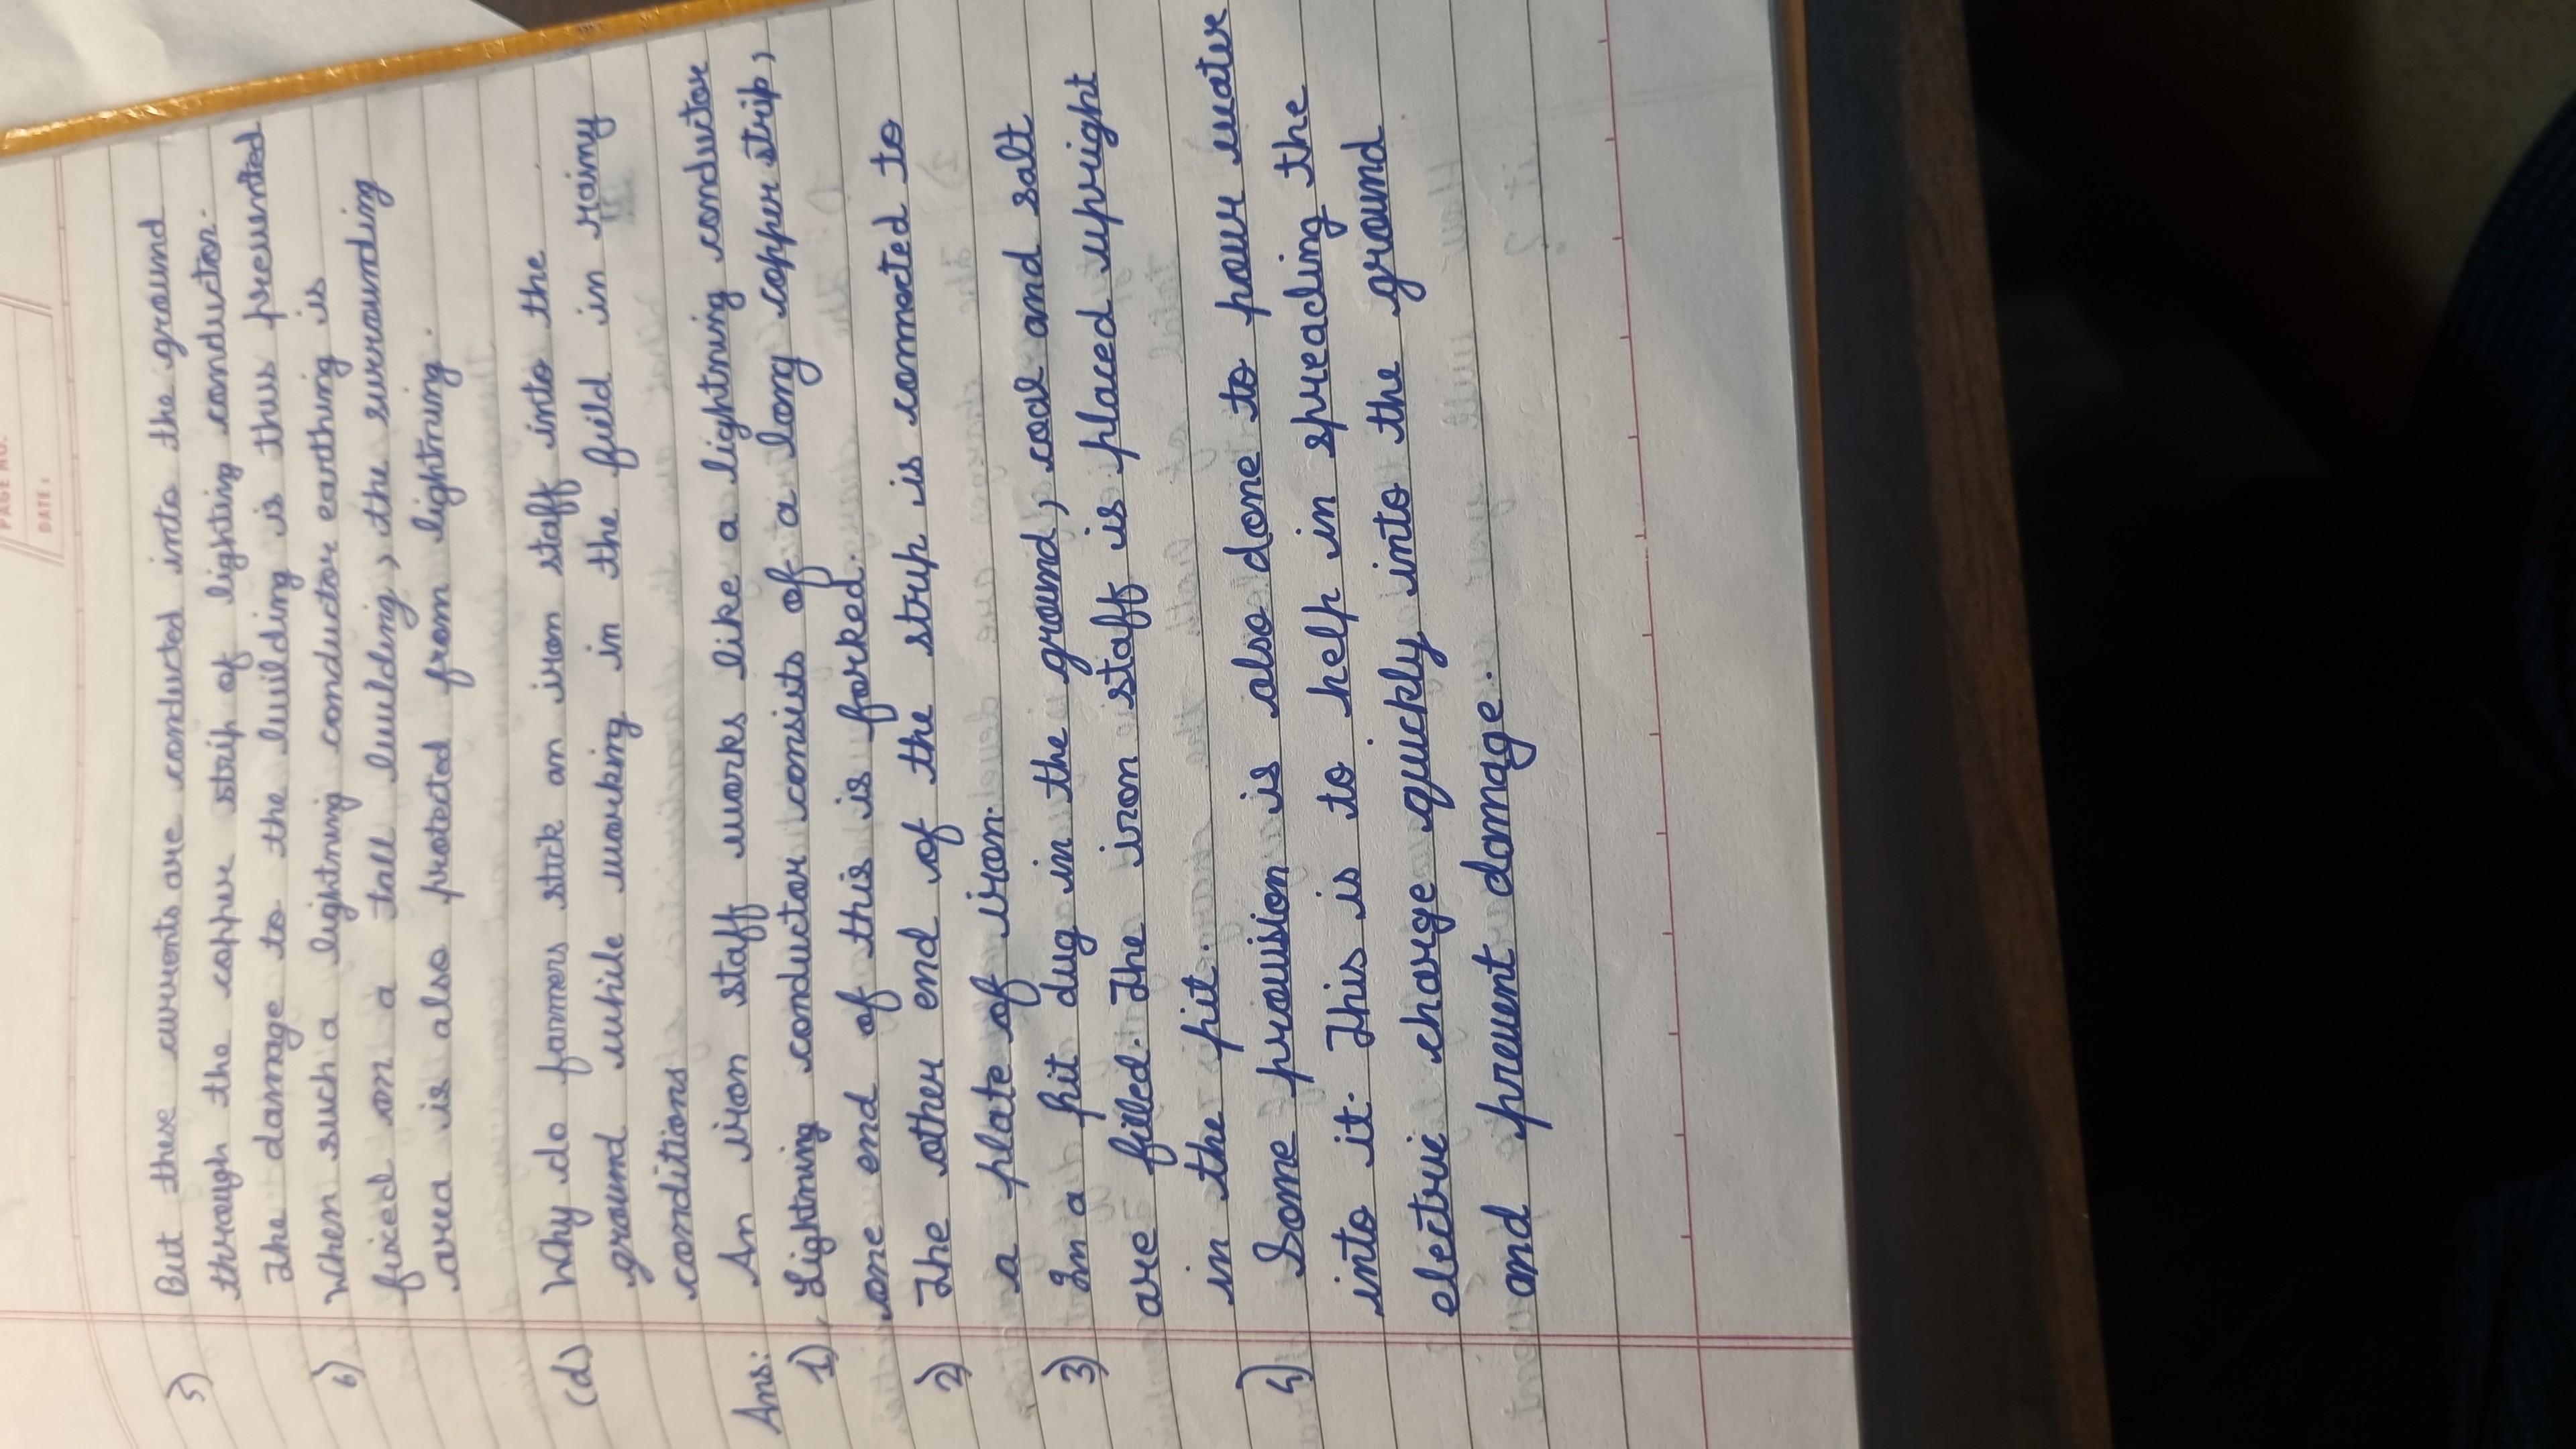 PAGE NO.
DATE:
5) But these currents are conducted into the ground
through the copper strip of lighting conductor.
The damage to the building is thus prevented
6) When such a lightning conductor earthing is
fixed on a tall building, the surrounding
area is also protected from lightning.
(d) Why do farmers stick an iron staff into the
ground while working in the field in rainy
conditions
Ans: An iron staff works like a lightning conductor
1) Lightning conductor consists of a long copper strip,
one end of this is forked.
2) The other end of the strip is connected to
a plate of iron.
3) In a pit dug in the ground, coal and salt
are filled. The iron staff is placed upright
in the pit.
4) Some provision is also done to pour water
into it. This is to help in spreading the
electric charge quickly into the ground
and prevent damage.